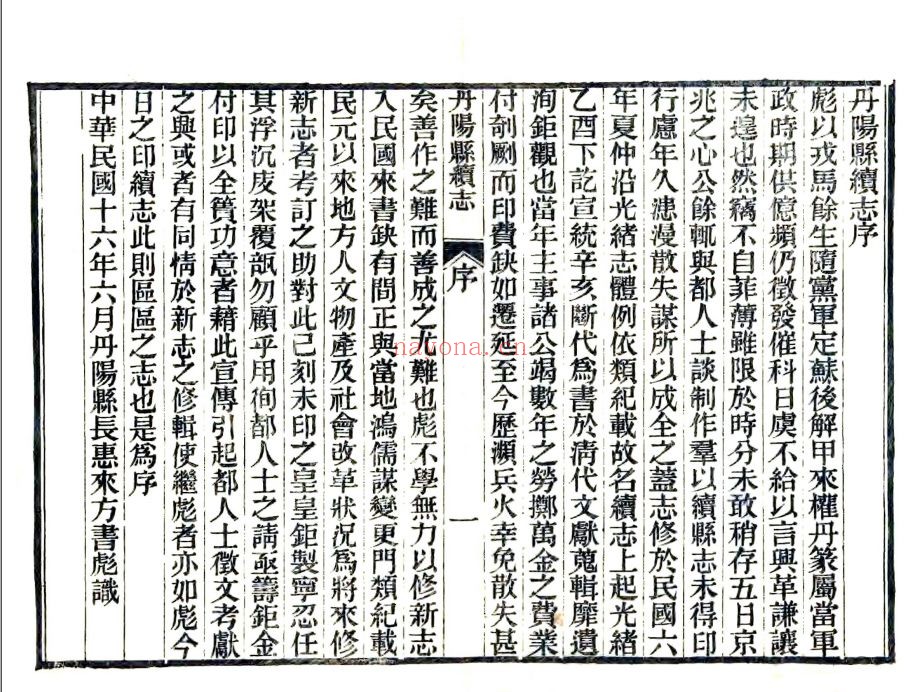 丹陽縣續志序
彪以戎馬餘生隨黨軍定蘇後解甲來權丹篆屬當軍
政時期供億頻仍徵發催科日虞不給以言興革謙讓
未遑也然竊不自菲薄雖限於時分未敢稍存五日京
兆之心公餘輒與都人士談制作羣以續縣志未得印
行慮年久漶漫散失謀所以成全之蓋志修於民國六
年夏仲沿光緒志體例依類紀載故名續志上起光緒
乙酉下訖宣統辛亥斷代爲書於淸代文獻蒐輯靡遺
洵鉅觀也當年主事諸公竭數年之勞擲萬金之費業
付剞劂而印費缺如遷延至今歷瀕兵火幸免散失甚
丹陽縣續志 序 一
矣善作之難而善成之尤難也彪不學無力以修新志
入民國來書缺有間正與當地鴻儒謀變更門類紀載
民元以來地方人文物產及社會改革狀況爲將來修
新志者考訂之助對此已刻未印之皇皇鉅製寧忍任
其浮沉庋架覆瓿勿顧乎用徇都人士之請亟籌鉅金
付印以全簣功意者藉此宣傳引起都人士徵文考獻
之興或者有同情於新志之修輯使繼彪者亦如彪今
日之印續志此則區區之志也是爲序
中華民國十六年六月丹陽縣長惠來方書彪識
nayona.cn